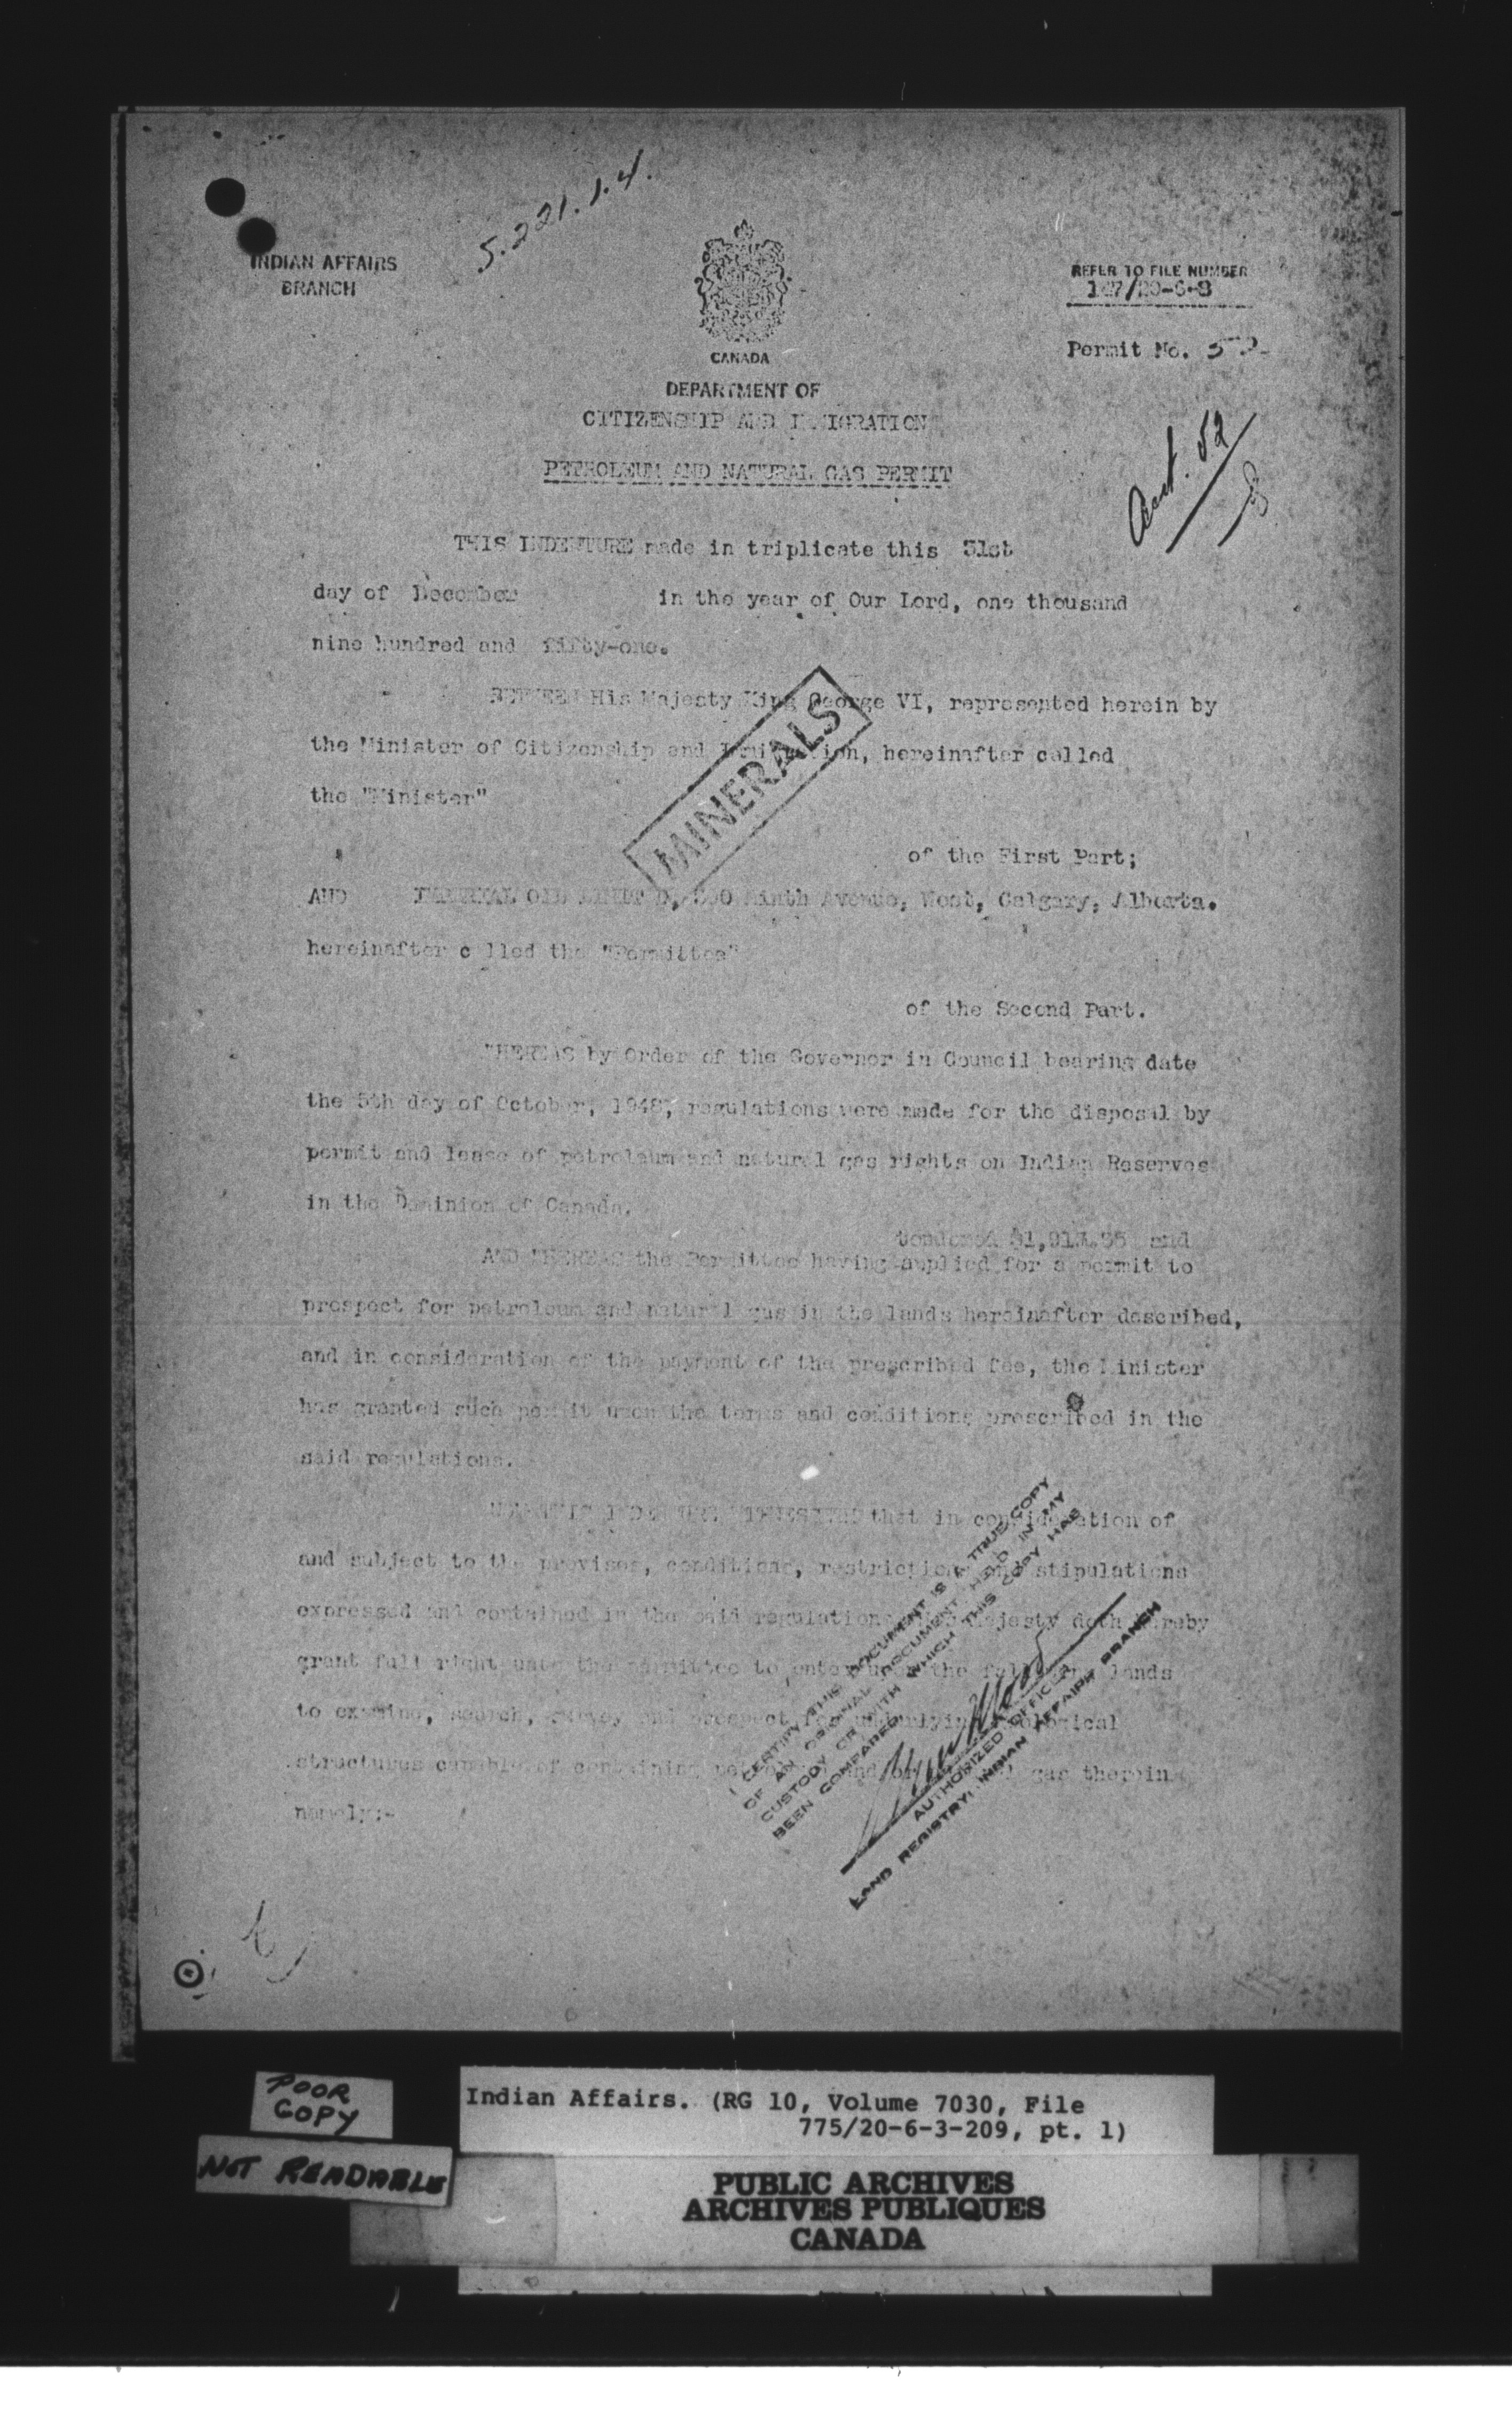 5.221.1.4.
INDIAN AFFAIRS
BRANCH
CANADA
REFER TO FILE NUMBER
Permit No.
DEPARTMENT OF
CITIZENSHIP AND IMMIGRATION
PETROLEUM AND NATURAL GAS PERMIT
THIS INDENTURE made in triplicate this 31st
day of December in the year of Our Lord, one thousand
nine hundred and fifty-one.
BETWEEN His Majesty King George VI, represented herein by
the Minister of Citizenship and Immigration, hereinafter called
the "Minister"
MINERALS
of the First Part;
AND IMPERIAL OIL LIMITED, Ninth Avenue, West, Calgary, Alberta.
hereinafter called the "Permittee"
of the Second Part.
WHEREAS by Order of the Governor in Council bearing date
the 5th day of October, 1948, regulations were made for the disposal by
permit and lease of petroleum and natural gas rights on Indian Reserves
in the Dominion of Canada.
tendered and
AND WHEREAS the Permittee having applied for a permit to
prospect for petroleum and natural gas in the lands hereinafter described,
and in consideration of the payment of the prescribed fee, the Minister
has granted such permit upon the terms and conditions prescribed in the
said regulations.
INDENTURE WITNESSETH that in consideration of
and subject to the provisos, conditions, restrictions and stipulations
expressed and contained in the said regulations His Majesty doth hereby
grant full right unto the permittee to enter upon the following lands
to examine, search, survey and prospect for underlying geological
structures capable of containing petroleum and/or natural gas therein
namely:-
I CERTIFY THIS DOCUMENT IS A TRUE COPY
OF AN ORIGINAL DOCUMENT HELD IN MY
CUSTODY OR WITH WHICH THIS COPY HAS
BEEN COMPARED
AUTHORIZED OFFICER
LAND REGISTRY, INDIAN AFFAIRS BRANCH
POOR
COPY
NOT READABLE
Indian Affairs. (RG 10, Volume 7030, File
775/20-6-3-209, pt. 1)
PUBLIC ARCHIVES
ARCHIVES PUBLIQUES
CANADA